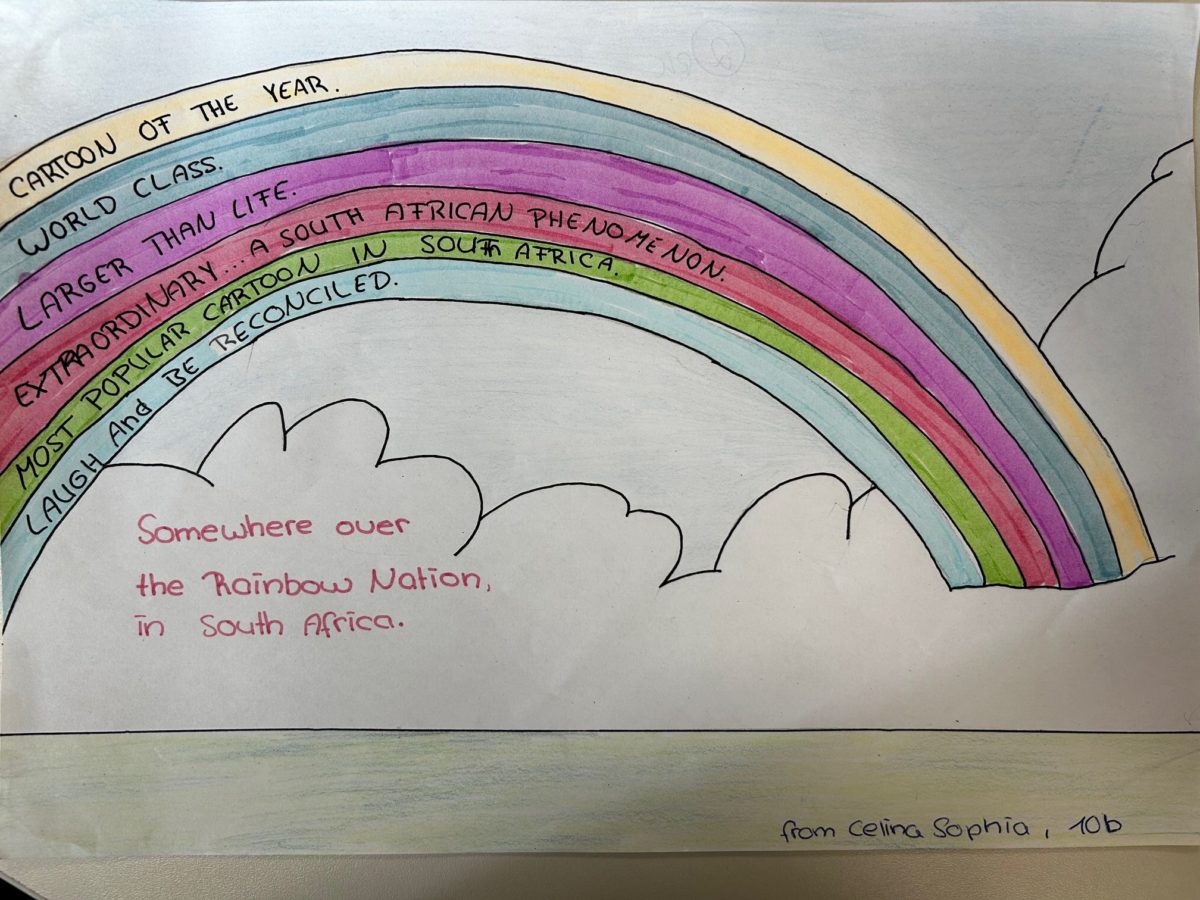 CARTOON OF THE YEAR.
WORLD CLASS.
LARGER THAN LIFE.
EXTRAORDINARY... A SOUTH AFRICAN PHENOMENON.
MOST POPULAR CARTOON IN SOUTH AFRICA.
LAUGH And BE RECONCILED.
Somewhere over
the Rainbow Nation,
in South Africa.
from Celina Sophia, 10b